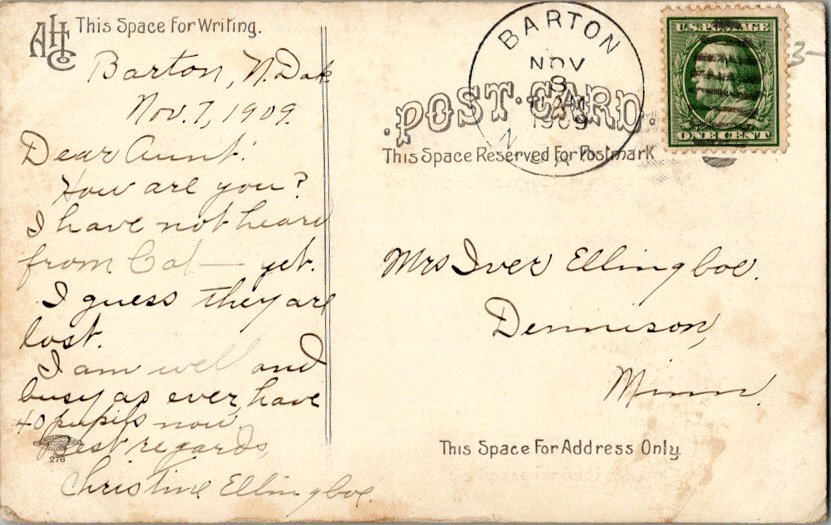 AHCo This Space For Writing.
Barton, N. Dak
Nov. 7, 1909.
Dear Aunt:
How are you?
I have not heard
from Cal— yet.
I guess they are
lost.
I am well and
busy as ever, have
40 pupils now.
Best regards,
Christine Ellingboe.
276
BARTON
NOV
8
1909
POST CARD.
This Space Reserved For Postmark
U.S. POSTAGE
ONE CENT
3-
Mrs Iver Ellingboe.
Dennison,
Minn.
This Space For Address Only.